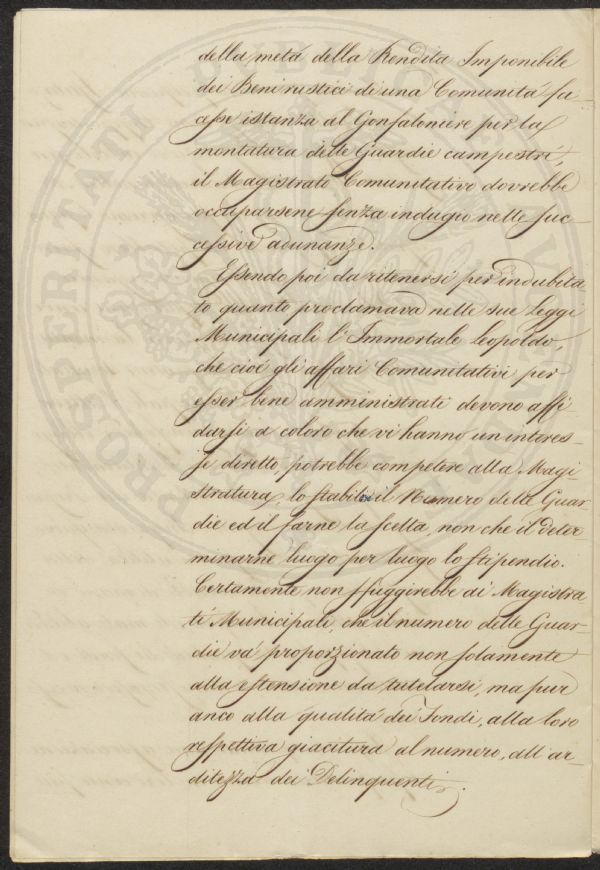 della metà della Rendita Imponibile
dei Beni rustici di una Comunità fa-
cesse istanza al Gonfaloniere per la
montatura delle Guardie campestri,
il Magistrato Comunitativo dovrebbe
occuparsene senza indugio nelle suc-
cessive adunanze.
Essendo poi da ritenersi per indubita
to quanto proclamava nelle sue Leggi
Municipali l'Immortale Leopoldo,
che cioè gli affari Comunitativi per
esser bene amministrati devono affi-
darsi a coloro che vi hanno un interes-
se diretto, potrebbe competere alla Magi-
stratura, lo stabilir il Numero delle Guar
die ed il farne la scelta, non che il deter-
minarne luogo per luogo lo stipendio.
Certamente non sfuggirebbe ai Magistra
ti Municipali, che il numero delle Guar-
die và proporzionato non solamente
alla estensione da tutelarsi, ma pur
anco alla qualità dei Fondi, alla loro
respettiva giacitura al numero, all'ar-
ditezza dei Delinquenti.
PROSPERITATI PUBLIC